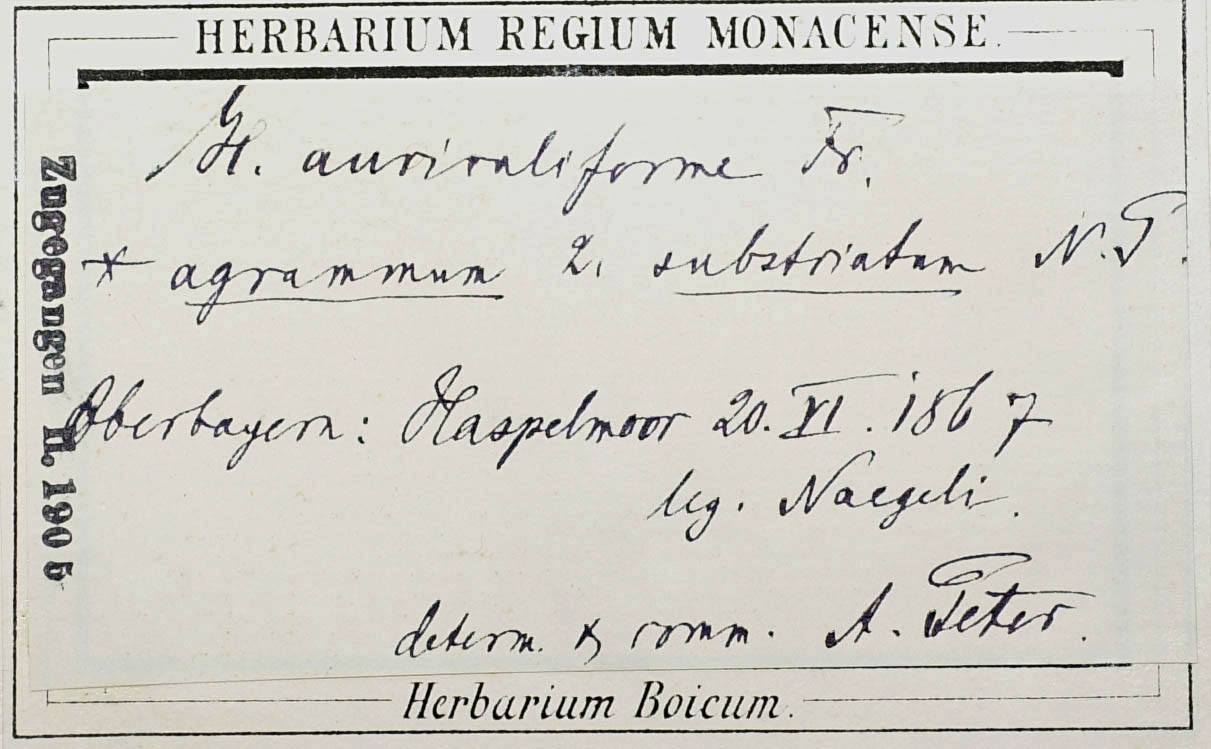 HERBARIUM REGIUM MONACENSE.
H. auriculiforme Fr.
* agrammum 2. substriatum N.P.
Oberbayern: Haspelmoor 20. VI. 1867
leg. Naegeli.
determ. & comm. A. Peter.
Herbarium Boicum.
Zugegangen II. 1905